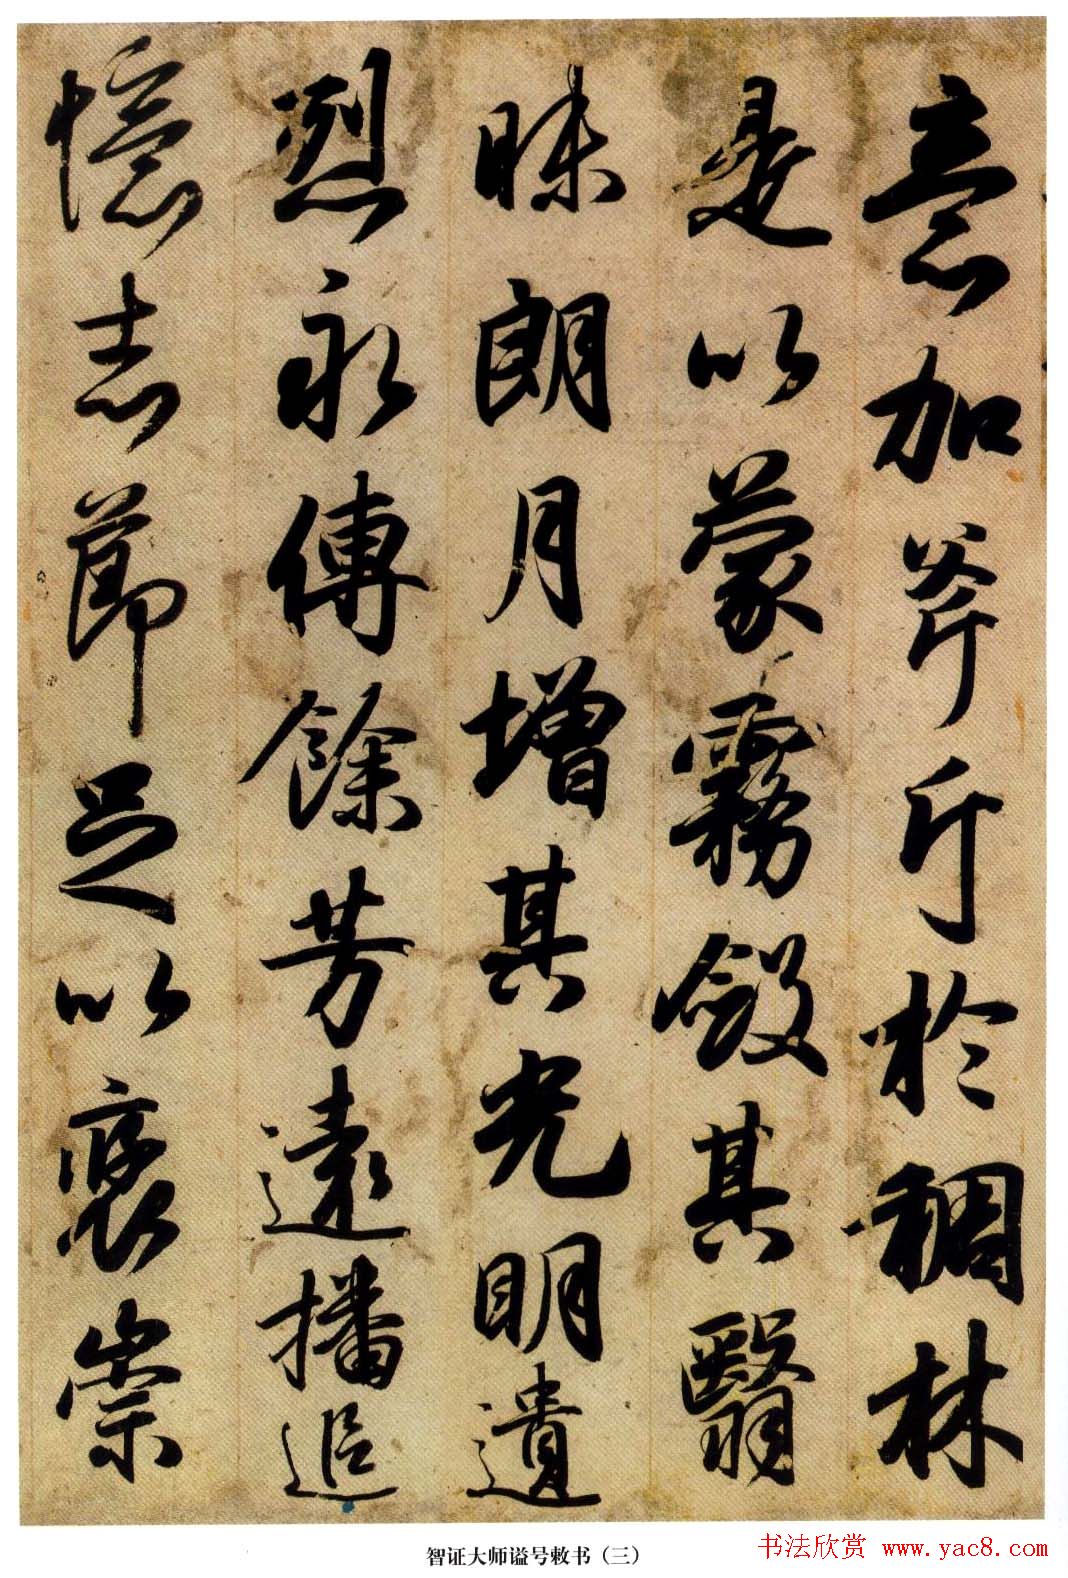 意加斧斤於稠林
是以蒙霧斂其翳
昧朗月增其光明遺
烈永傳餘芳遠播追
憶志節足以褒崇
智证大师谥号敕书（三）
书法欣赏 www.yac8.com